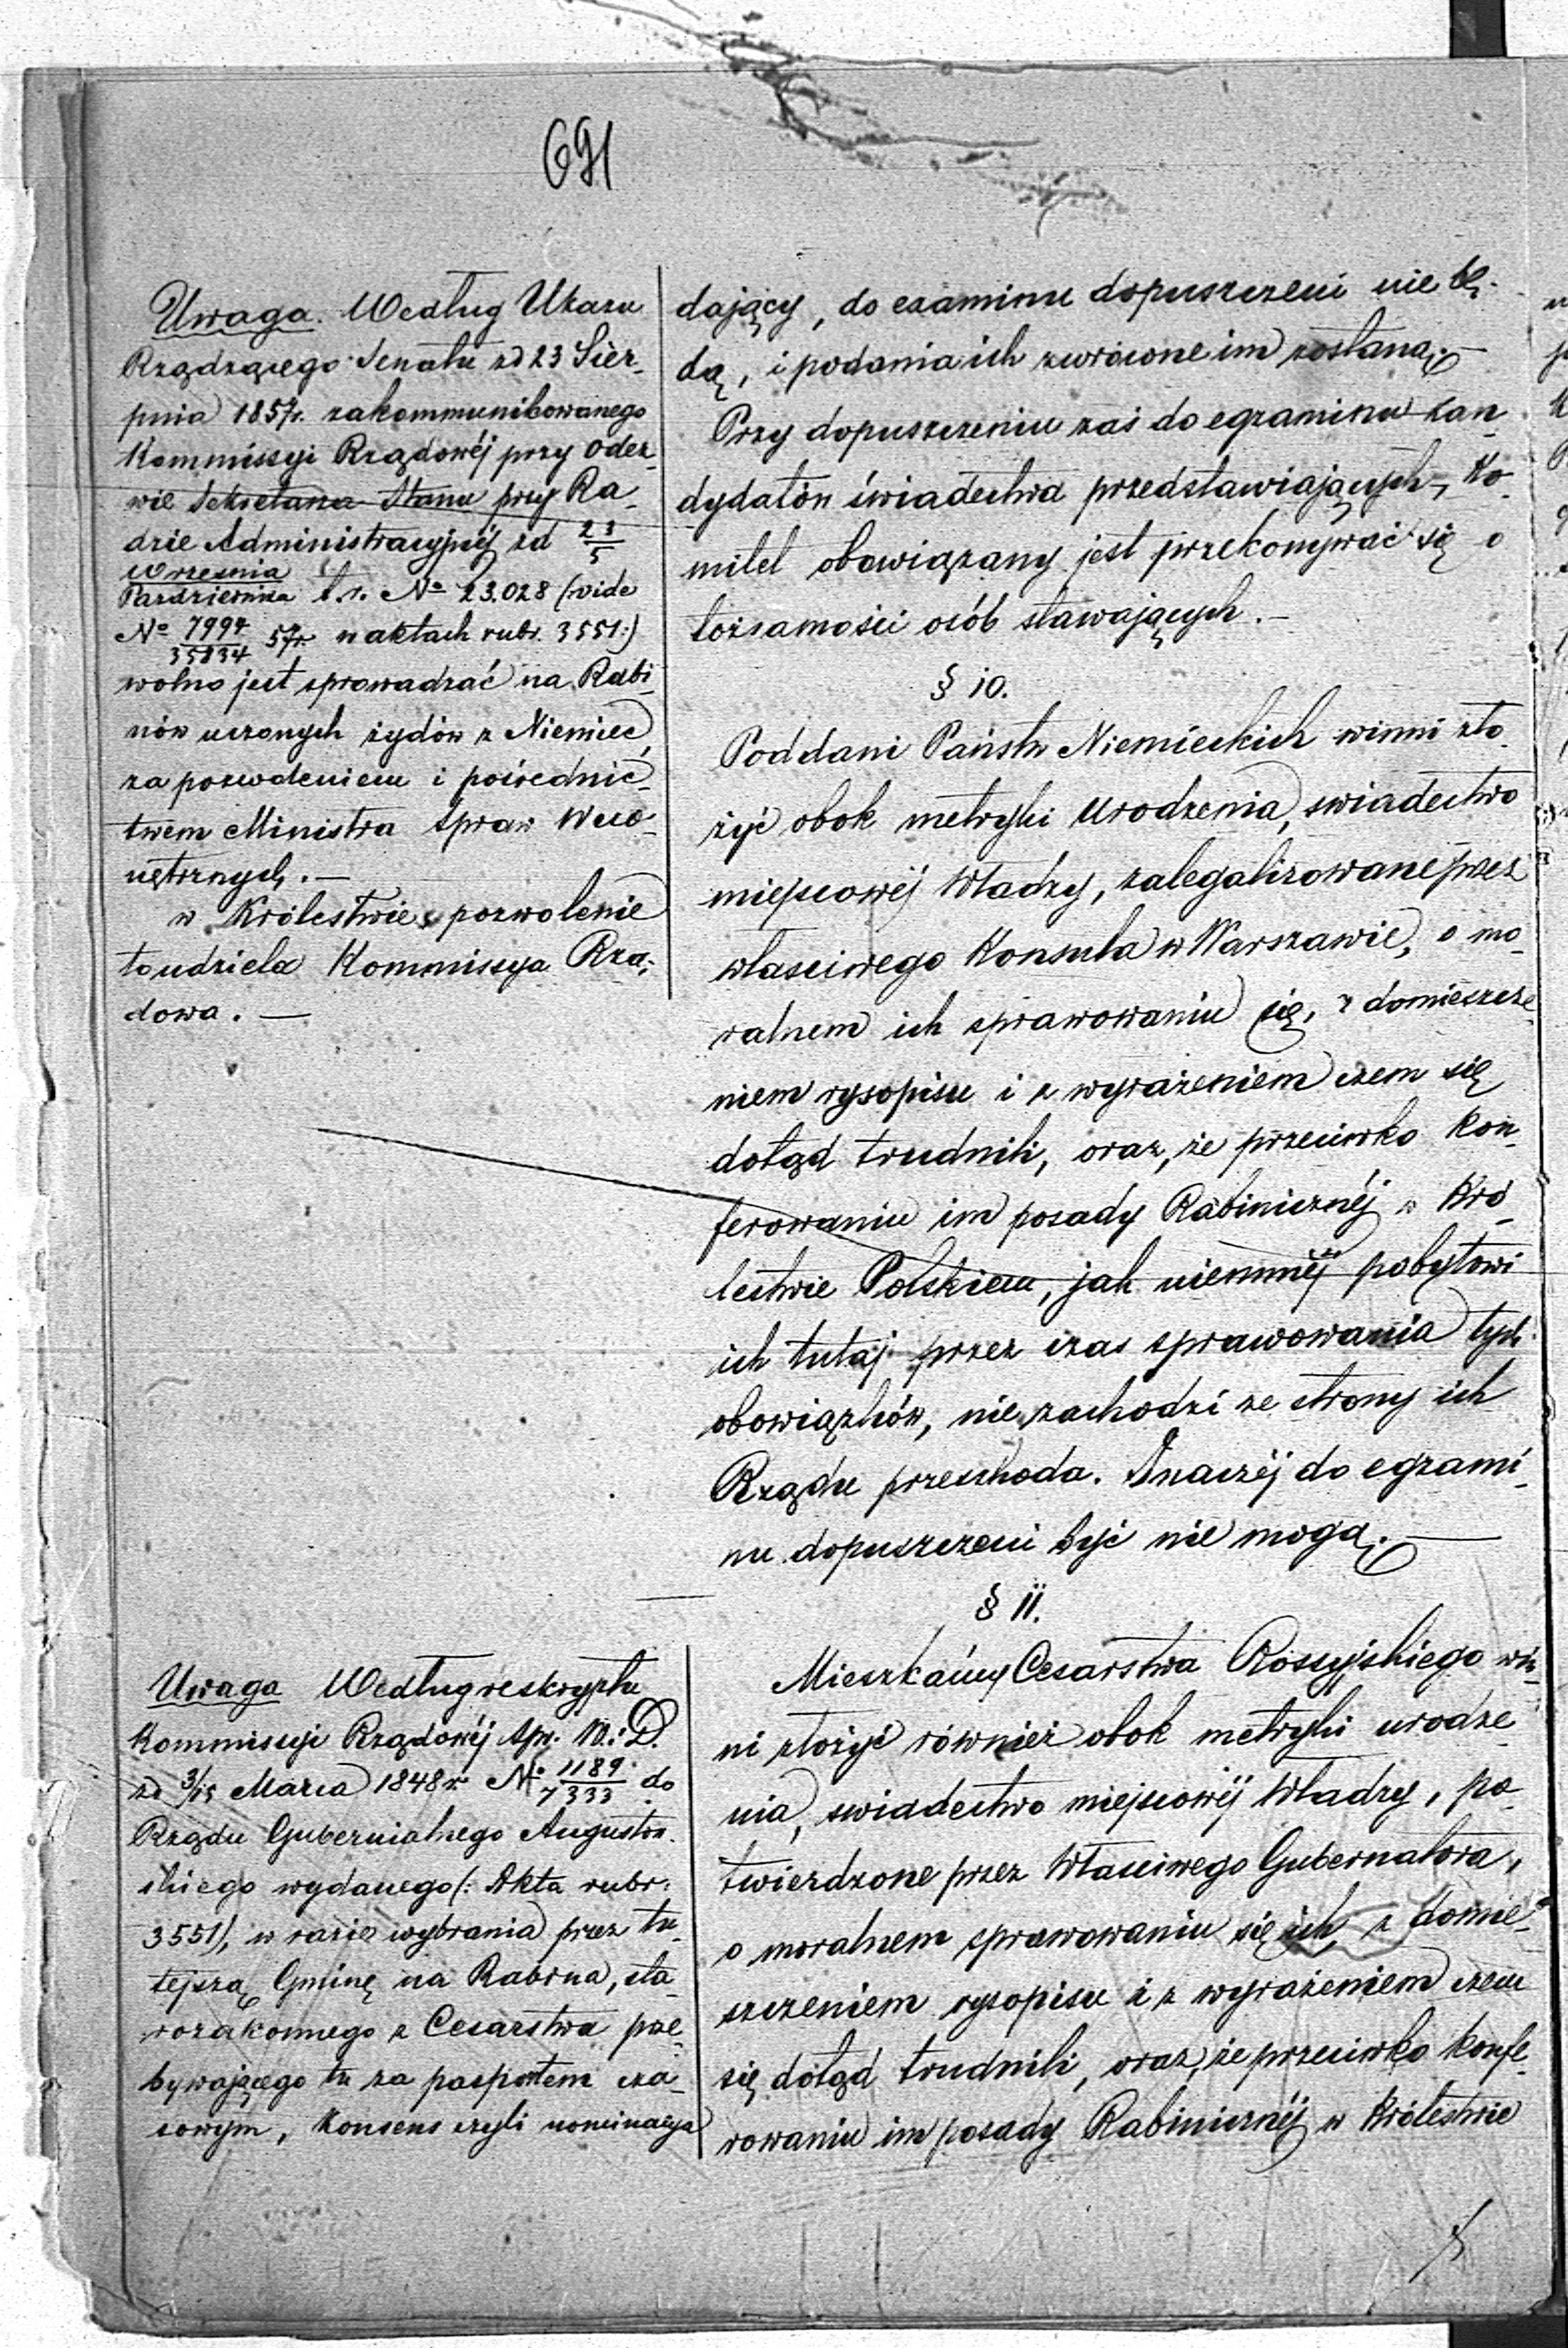 691
Uwaga. Według Ukazu
Rządzącego Senatu zd 23 Sier-
pnia 1857r. zakommunikowanego
Kommissyi Rządowéj przy odez-
wie Sekretarza Stanu przy Ra-
dzie Administracyjnéj zd 23/5
Września
Października t.r. No 23.028 (vide
No 7994/35834 57r. w aktach rubr. 3551:)
wolno jest sprowadzać na Rabi-
nów uczonych żydów z Niemiec,
za pozwoleniem i pośrednic-
twem Ministra Spraw Wew-
nętrznych.—
w Królestwie, pozwolenie
to udziela Kommissya Rzą-
dowa.—
dający, do examinu dopuszczeni nie bę-
dą, i podania ich zwrócone im zostaną.—
Przy dopuszczeniu zaś do egzaminu kan-
dydatów świadectwa przedstawiających, Ko-
mitet obowiązany jest przekonywać się o
tożsamości osób stawających.—
§ 10.
Poddani Państw Niemieckich winni zło-
żyć obok metryki urodzenia, swiadectwo
miejscowéj Władzy, zalegalizowane przez
właściwego Konsula w Warszawie, o mo-
ralnem ich sprawowaniu się, z domieszcze-
niem rysopisu i z wyrażeniem czem się
dotąd trudnili, oraz, że przeciwko kon-
ferowaniu im posady Rabinicznéj w Kró-
lestwie Polskiem, jak niemniéj pobytowi
ich tutaj przez czas sprawowania tych
obowiązków, nie zachodzi ze strony ich
Rządu przeszkoda. Inaczéj do egzami-
nu dopuszczeni być nie mogą.—
§ 11.
Uwaga Według reskryptu
Kommissyi Rządowéj Spr. W. i D.
zd 3/15 Marca 1848 r. No 1189/7333 do
Rządu Gubernialnego Augustow-
skiego wydanego (: Akta rubr:
3551), w razie wybrania przez tu-
tejszą Gminę na Rabina, sta-
rozakonnego z Cesarstwa prze-
bywającego tu za paszportem cza-
sowym, Konsens czyli nominacya
Mieszkańcy Cesarstwa Rossyjskiego win-
ni złożyć również obok metryki urodze-
nia, swiadectwo miejscowéj Władzy, po-
twierdzone przez Właściwego Gubernatora,
o moralnem sprawowaniu się ich, z domie-
szczeniem rysopisu i z wyrażeniem czem
się dotąd trudnili, oraz, że przeciwko konfe-
rowaniu im posady Rabinicznéj w Królestwie